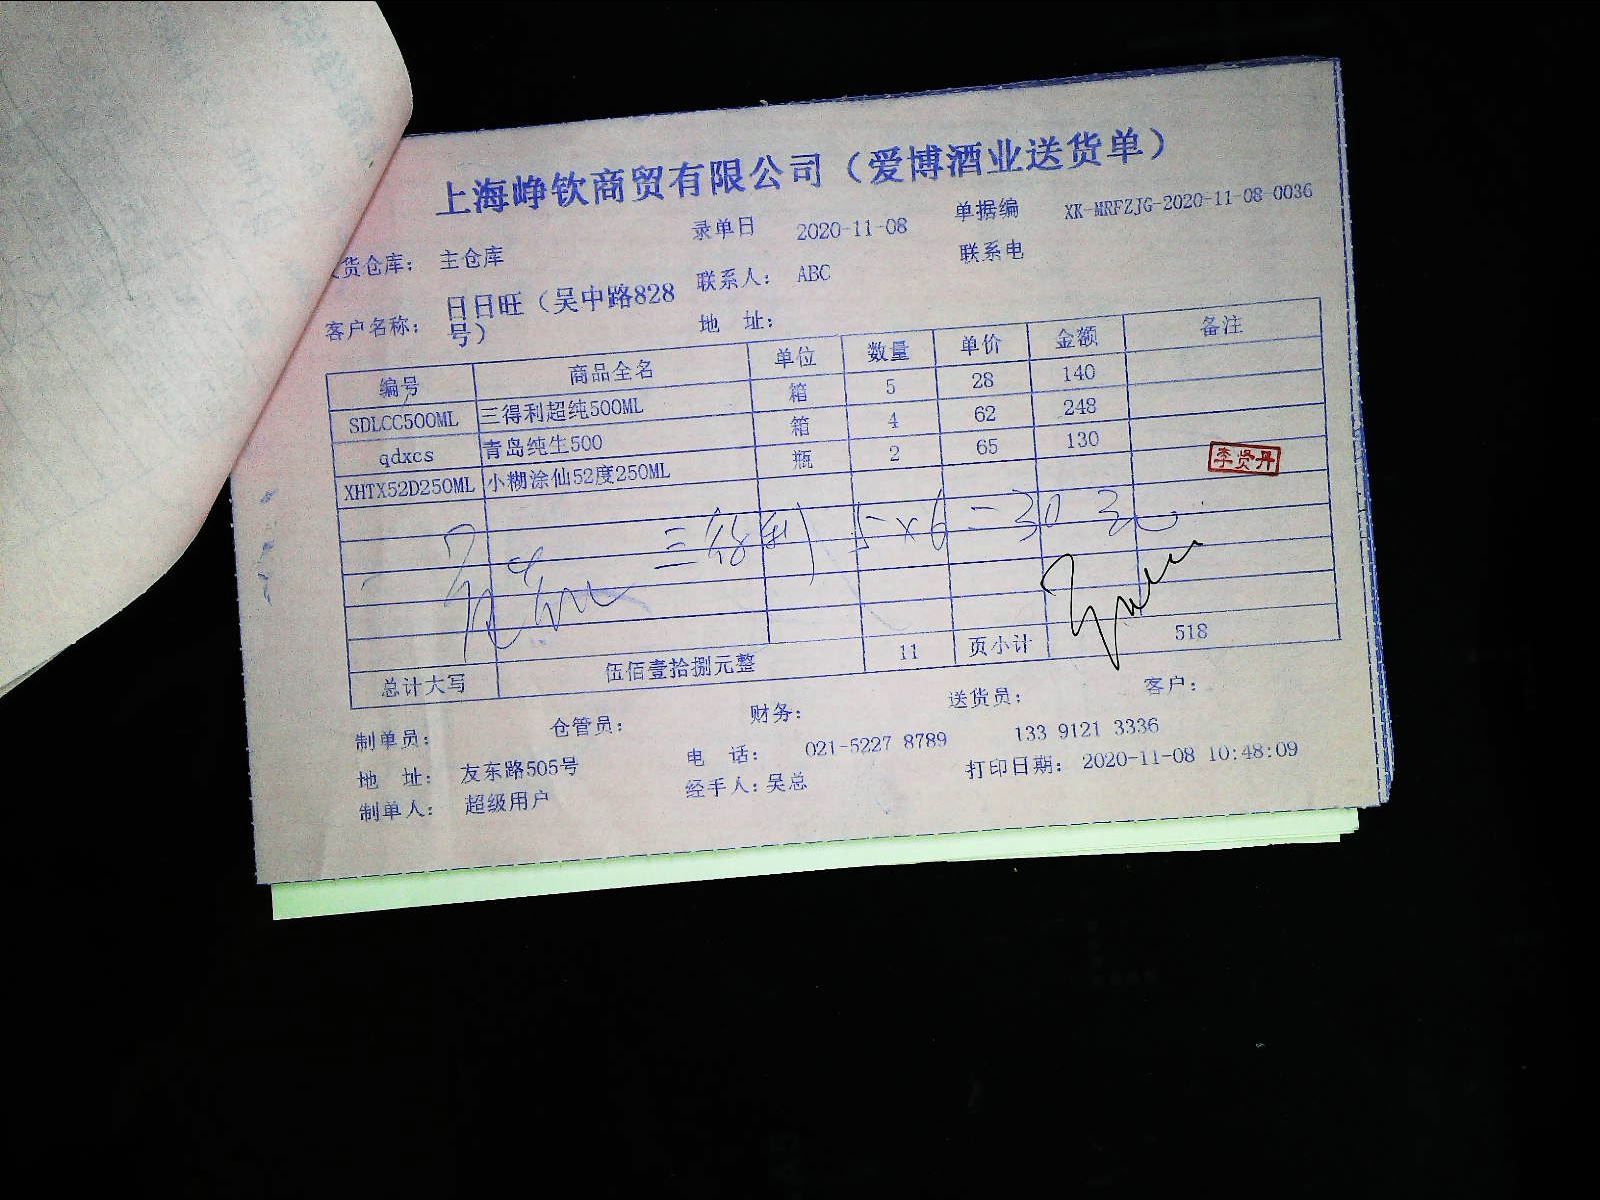 上海峥钦商贸有限公司（爱博酒业送货单）
货仓库： 主仓库 录单日 2020-11-08 单据编 XK-MRFZJG-2020-11-08-0036
客户名称： 日日旺（吴中路828号） 联系人： ABC 联系电
地 址：
编号 商品全名 单位 数量 单价 金额 备注
SDLCC500ML 三得利超纯500ML 箱 5 28 140
qdxcs 青岛纯生500 箱 4 62 248
XHTX52D250ML 小糊涂仙52度250ML 瓶 2 65 130
李贤丹
三得利 5×6=30
总计大写 伍佰壹拾捌元整 11 页小计 518
制单员： 仓管员： 财务： 送货员： 客户：
地 址： 友东路505号 电 话： 021-5227 8789 133 9121 3336
制单人： 超级用户 经手人：吴总 打印日期： 2020-11-08 10:48:09